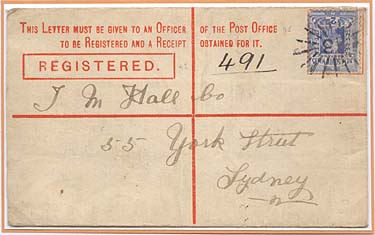 THIS LETTER MUST BE GIVEN TO AN OFFICER OF THE POST OFFICE
TO BE REGISTERED AND A RECEIPT OBTAINED FOR IT.
REGISTERED.
491
J M Hall Co
55 York Street
Sydney